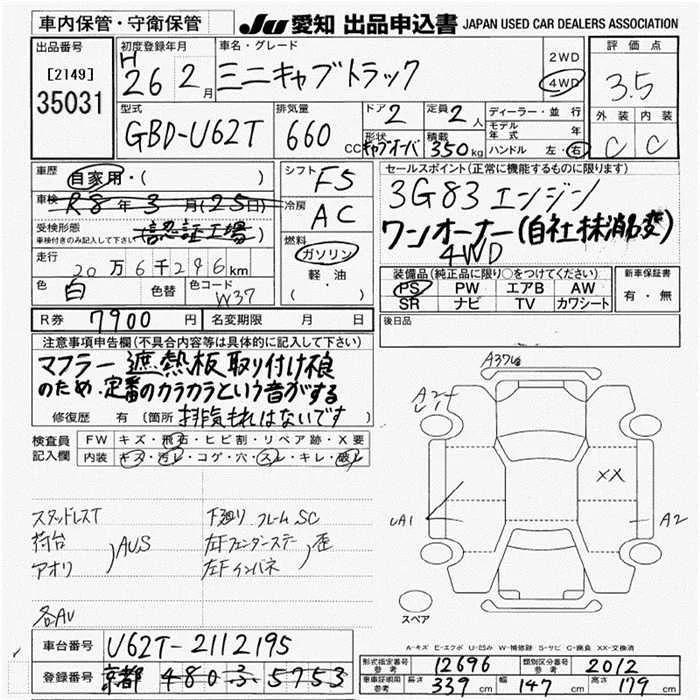 車内保管・守衛保管
JU 愛知 出品申込書 JAPAN USED CAR DEALERS ASSOCIATION
出品番号
[2149]
35031
初度登録年月
H 26 2月
車名・グレード
ミニキャブトラック
2WD
4WD
評価点
3.5
外装 内装
C C
型式
GBD-U62T
排気量
660 CC
ドア 2
定員 2人
形状 キャブオーバ
積載 350kg
ディーラー・並行
モデル年式 年
ハンドル 左・右
車歴
自家用・( )
車検 R8年3月(25日)
受検形態
車検付きのみ記入して下さい
(認証工場)
走行
20万6千296km
色 白 色替 色コード W37
シフト F5
冷房 AC
燃料
ガソリン
軽油
( ・ )
セールスポイント(正常に機能するものに限ります)
3G83エンジン
ワンオーナー(自社抹消変)
4WD
装備品(純正品に限り○をつけてください)
PS PW エアB AW
SR ナビ TV カワシート
新車保証書
有・無
R券 7900円 名変期限 月 日
後日品
注意事項申告欄(不具合内容等は具体的に記入して下さい)
マフラー遮熱板取り付け
のため、定番のカラカラという音がする
修復歴 有(箇所 排気もれはないです
検査員記入欄
FW キズ・飛石・ヒビ割・リペア跡・X要
内装 キズ・汚レ・コゲ・穴・スレ・キレ・破レ
スタッドレスT
荷台
アオリ
)AUS
各AU
下廻り フレームSC
左Fフェンダーステー
左Fインパネ
)歪
A3
A2
UA1
XX
A2
スペア
A-キズ E-エクボ U-凹み W-補修跡 S-サビ C-腐食 XX-交換済
車台番号 U62T-2112195
登録番号 京都 480 ふ 5753
形式指定番号 参考 12696
類別区分番号 参考 2012
車庫証明用 参考 長さ 339cm 幅 147cm 高さ 179cm